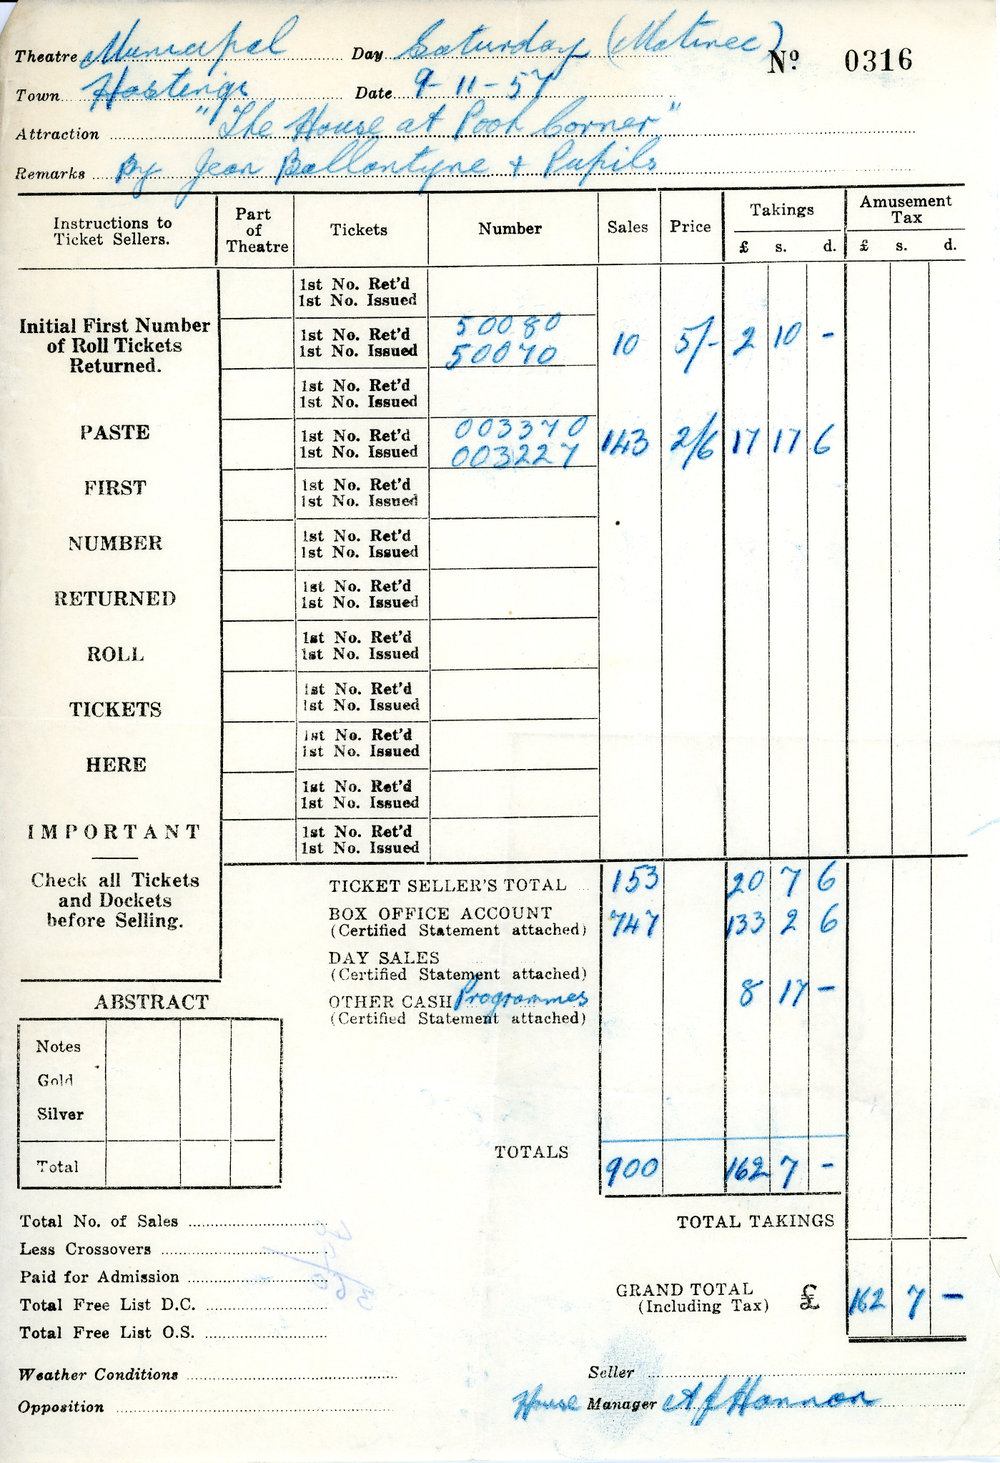 Theatre Municipal Day Saturday (Matinee) No 0316
Town Hastings Date 9-11-57
Attraction "The House at Pooh Corner"
Remarks By Jean Ballantyne + Pupils
Instructions to Ticket Sellers. Part of Theatre Tickets Number Sales Price Takings £ s. d. Amusement Tax £ s. d.
1st No. Ret'd
1st No. Issued
Initial First Number of Roll Tickets Returned.
1st No. Ret'd 50080
1st No. Issued 50070 10 5/- 2 10 -
1st No. Ret'd
1st No. Issued
PASTE
1st No. Ret'd 003370
1st No. Issued 003227 143 2/6 17 17 6
FIRST
1st No. Ret'd
1st No. Issued
NUMBER
1st No. Ret'd
1st No. Issued
RETURNED
1st No. Ret'd
1st No. Issued
ROLL
1st No. Ret'd
1st No. Issued
TICKETS
1st No. Ret'd
1st No. Issued
HERE
1st No. Ret'd
1st No. Issued
1st No. Ret'd
1st No. Issued
IMPORTANT
1st No. Ret'd
1st No. Issued
Check all Tickets
and Dockets
before Selling.
TICKET SELLER'S TOTAL 153 20 7 6
BOX OFFICE ACCOUNT 747 133 2 6
(Certified Statement attached)
DAY SALES
(Certified Statement attached)
OTHER CASH Programmes 8 17 -
(Certified Statement attached)
ABSTRACT
Notes
Gold
Silver
Total
TOTALS 900 162 7 -
Total No. of Sales
TOTAL TAKINGS
Less Crossovers
Paid for Admission
GRAND TOTAL
(Including Tax) £ 162 7 -
Total Free List D.C.
Total Free List O.S.
Weather Conditions
Seller
Opposition
House Manager A J Hannan